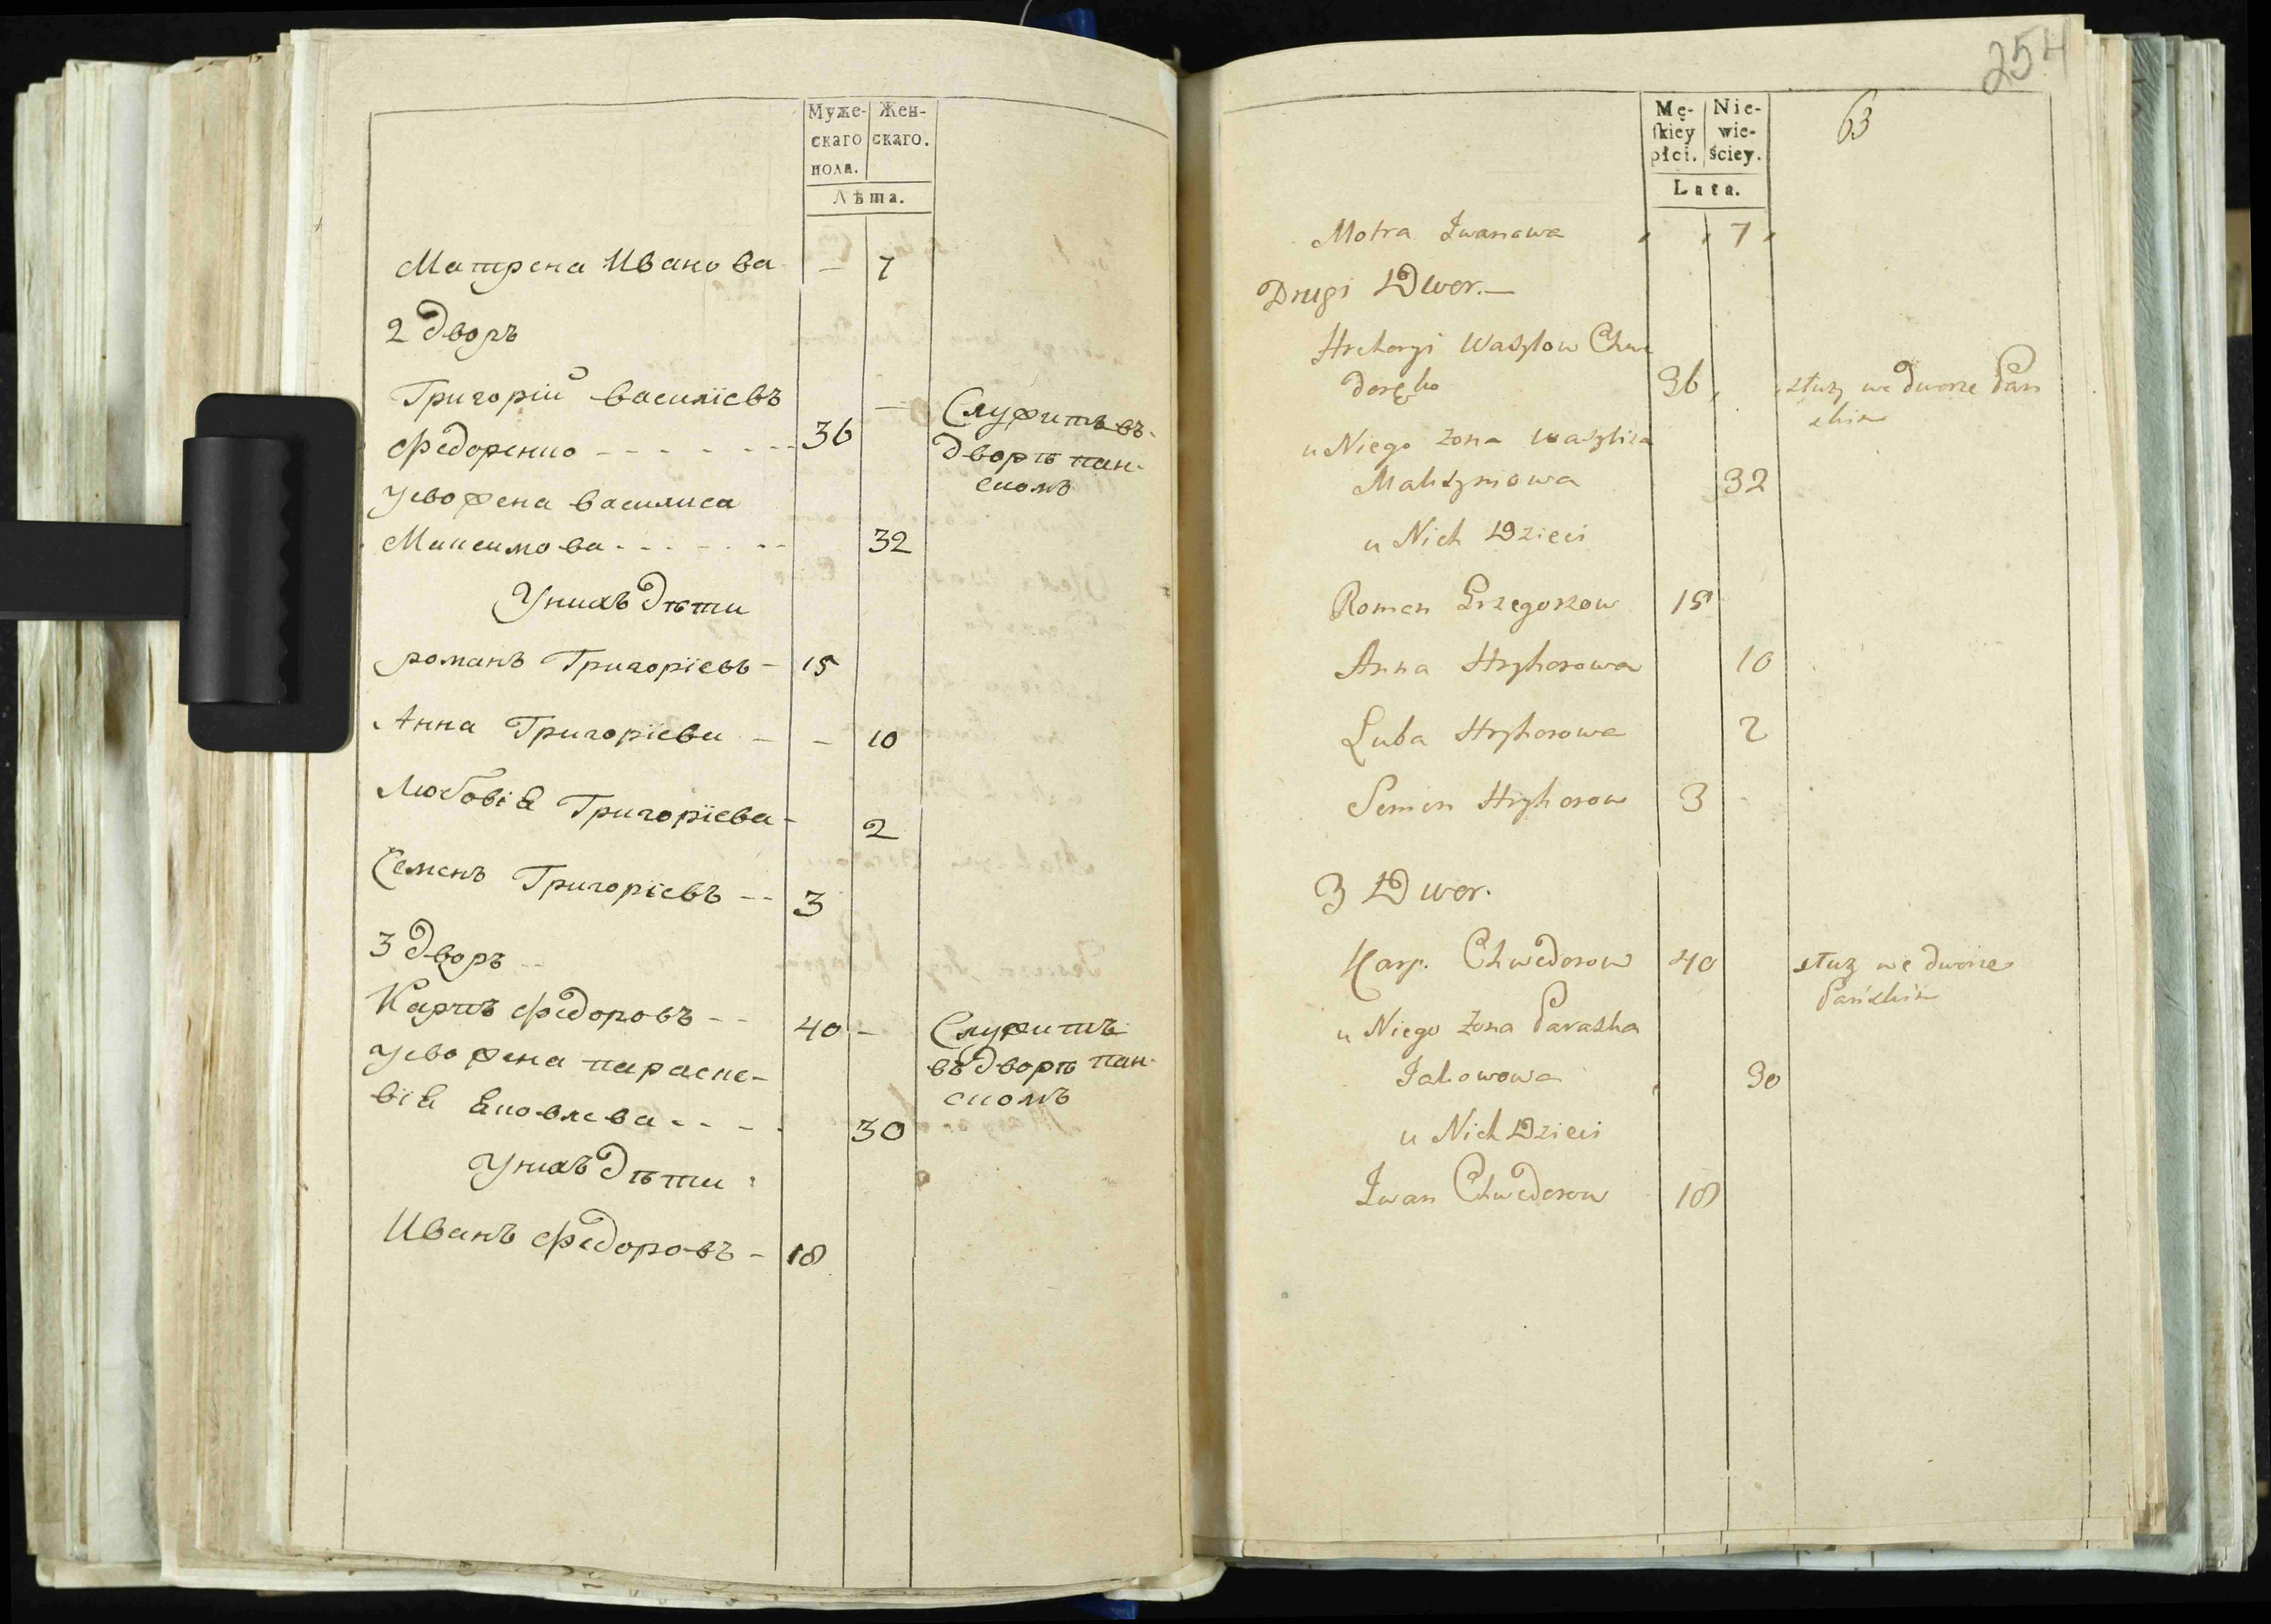 Муже-
скаго
пола.
Жен-
скаго.
Лѣта.
Матрена Иванова - 7
2 дворъ
Григорій василіевъ
Федоренко - - - - - - 36 —
Служитъ въ
дворѣ пан-
скомъ
уево жена василиса
Максимова - - - - - - 32
Унихъ дѣти
романъ Григоріевъ - 15
Анна Григоріева - - 10
Любовія Григоріева - 2
Семенъ Григоріевъ - - 3
3 дворъ -
Карпъ Федоровъ - - 40 -
Служитъ
въ дворѣ пан-
скомъ
уево жена параске-
вія яковлева - - - - 30
Унихъ дѣти
Иванъ Федоровъ - 18
254
63
Mę-
ſkiey
płci.
Nie-
wie-
ściey.
Lata.
Motra Iwanowa 7
Drugi Dwor. —
Hrehoryi Wasylow Chwe
doręko 36
służy we dworze Pań
skim
u Niego żona Wasylisa
Maksymowa 32
u Nich Dzieci
Roman Grzegorzow 15
Anna Hryhorowa 10
Luba Hryhorowa 2
Semen Hryhorow 3
3 Dwor.
Karp. Chwedorow 40
służy we dworze
Pańskim
u Niego żona Paraska
Jakowowa 30
u Nich Dzieci
Iwan Chwedorow 18